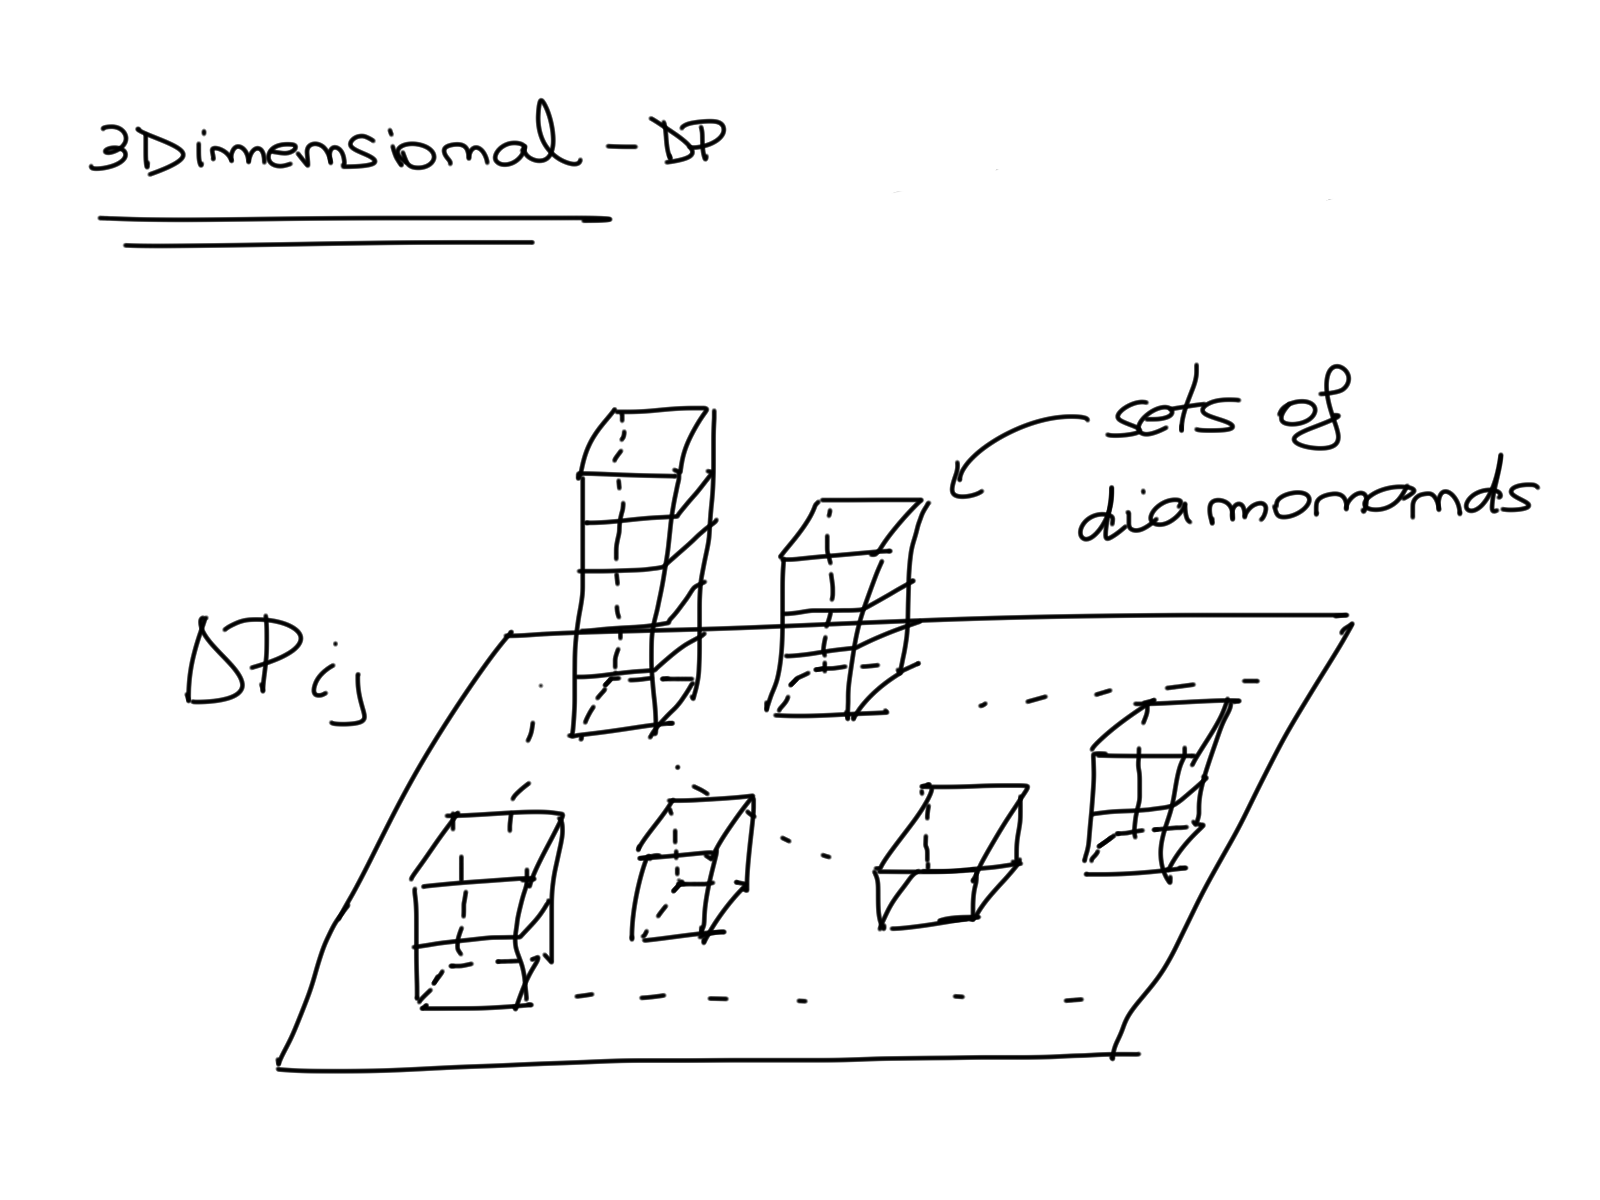 3Dimensional - DP
sets of
diamomomds
DP ij